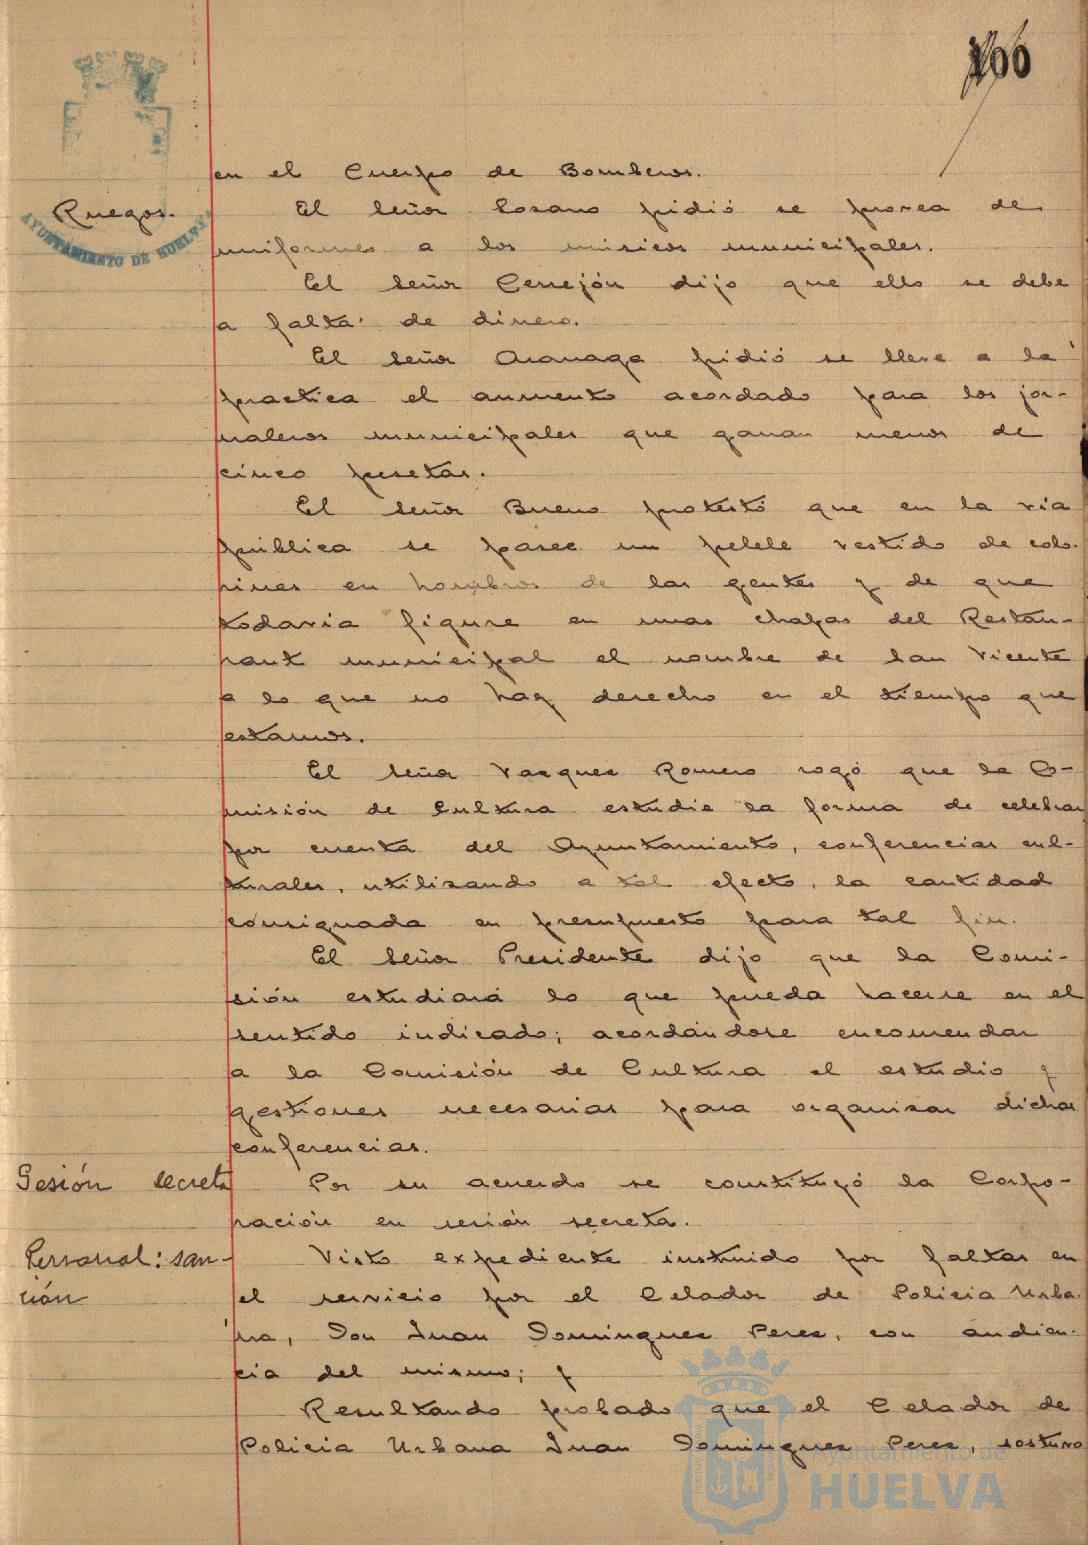 100
en el Cuerpo de Bomberos.
Ruegos.
AYUNTAMIENTO DE HUELVA
El señor Lozano pidió se provea de
uniformes a los músicos municipales.
El señor Cerrejón dijo que ello se debe
a falta de dinero.
El señor Aranaga pidió se lleve a la
practica el aumento acordado para los jor-
naleros municipales que ganan menos de
cinco pesetas.
El señor Bueno protestó que en la via
pública se pasee un pelele vestido de colo-
rines en hombros de las gentes y de que
todavia figure en unas chapas del Restau-
rant municipal el nombre de San Vicente
a lo que no hay derecho en el tiempo que
estamos.
El señor Vazquez Romero rogó que la Co-
misión de Cultura estudie la forma de celebrar
por cuenta del Ayuntamiento, conferencias cul-
turales, utilizando a tal efecto, la cantidad
consignada en presupuesto para tal fin.
El señor Presidente dijo que la Comi-
sión estudiará lo que pueda hacerse en el
sentido indicado; acordándose encomendar
a la Comisión de Cultura el estudio y
gestiones necesarias para organizar dichas
conferencias.
Sesión secreta
Por su acuerdo se constituyó la Corpo-
ración en sesión secreta.
Personal: san-
ción
Visto expediente instruido por faltas en
el servicio por el Celador de Policia Urba-
na, Don Juan Dominguez Perez, con audien-
cia del mismo; y
Resultando probado que el Celador de
Policia Urbana Juan Dominguez Perez, sostuvo
Ayuntamiento de
HUELVA